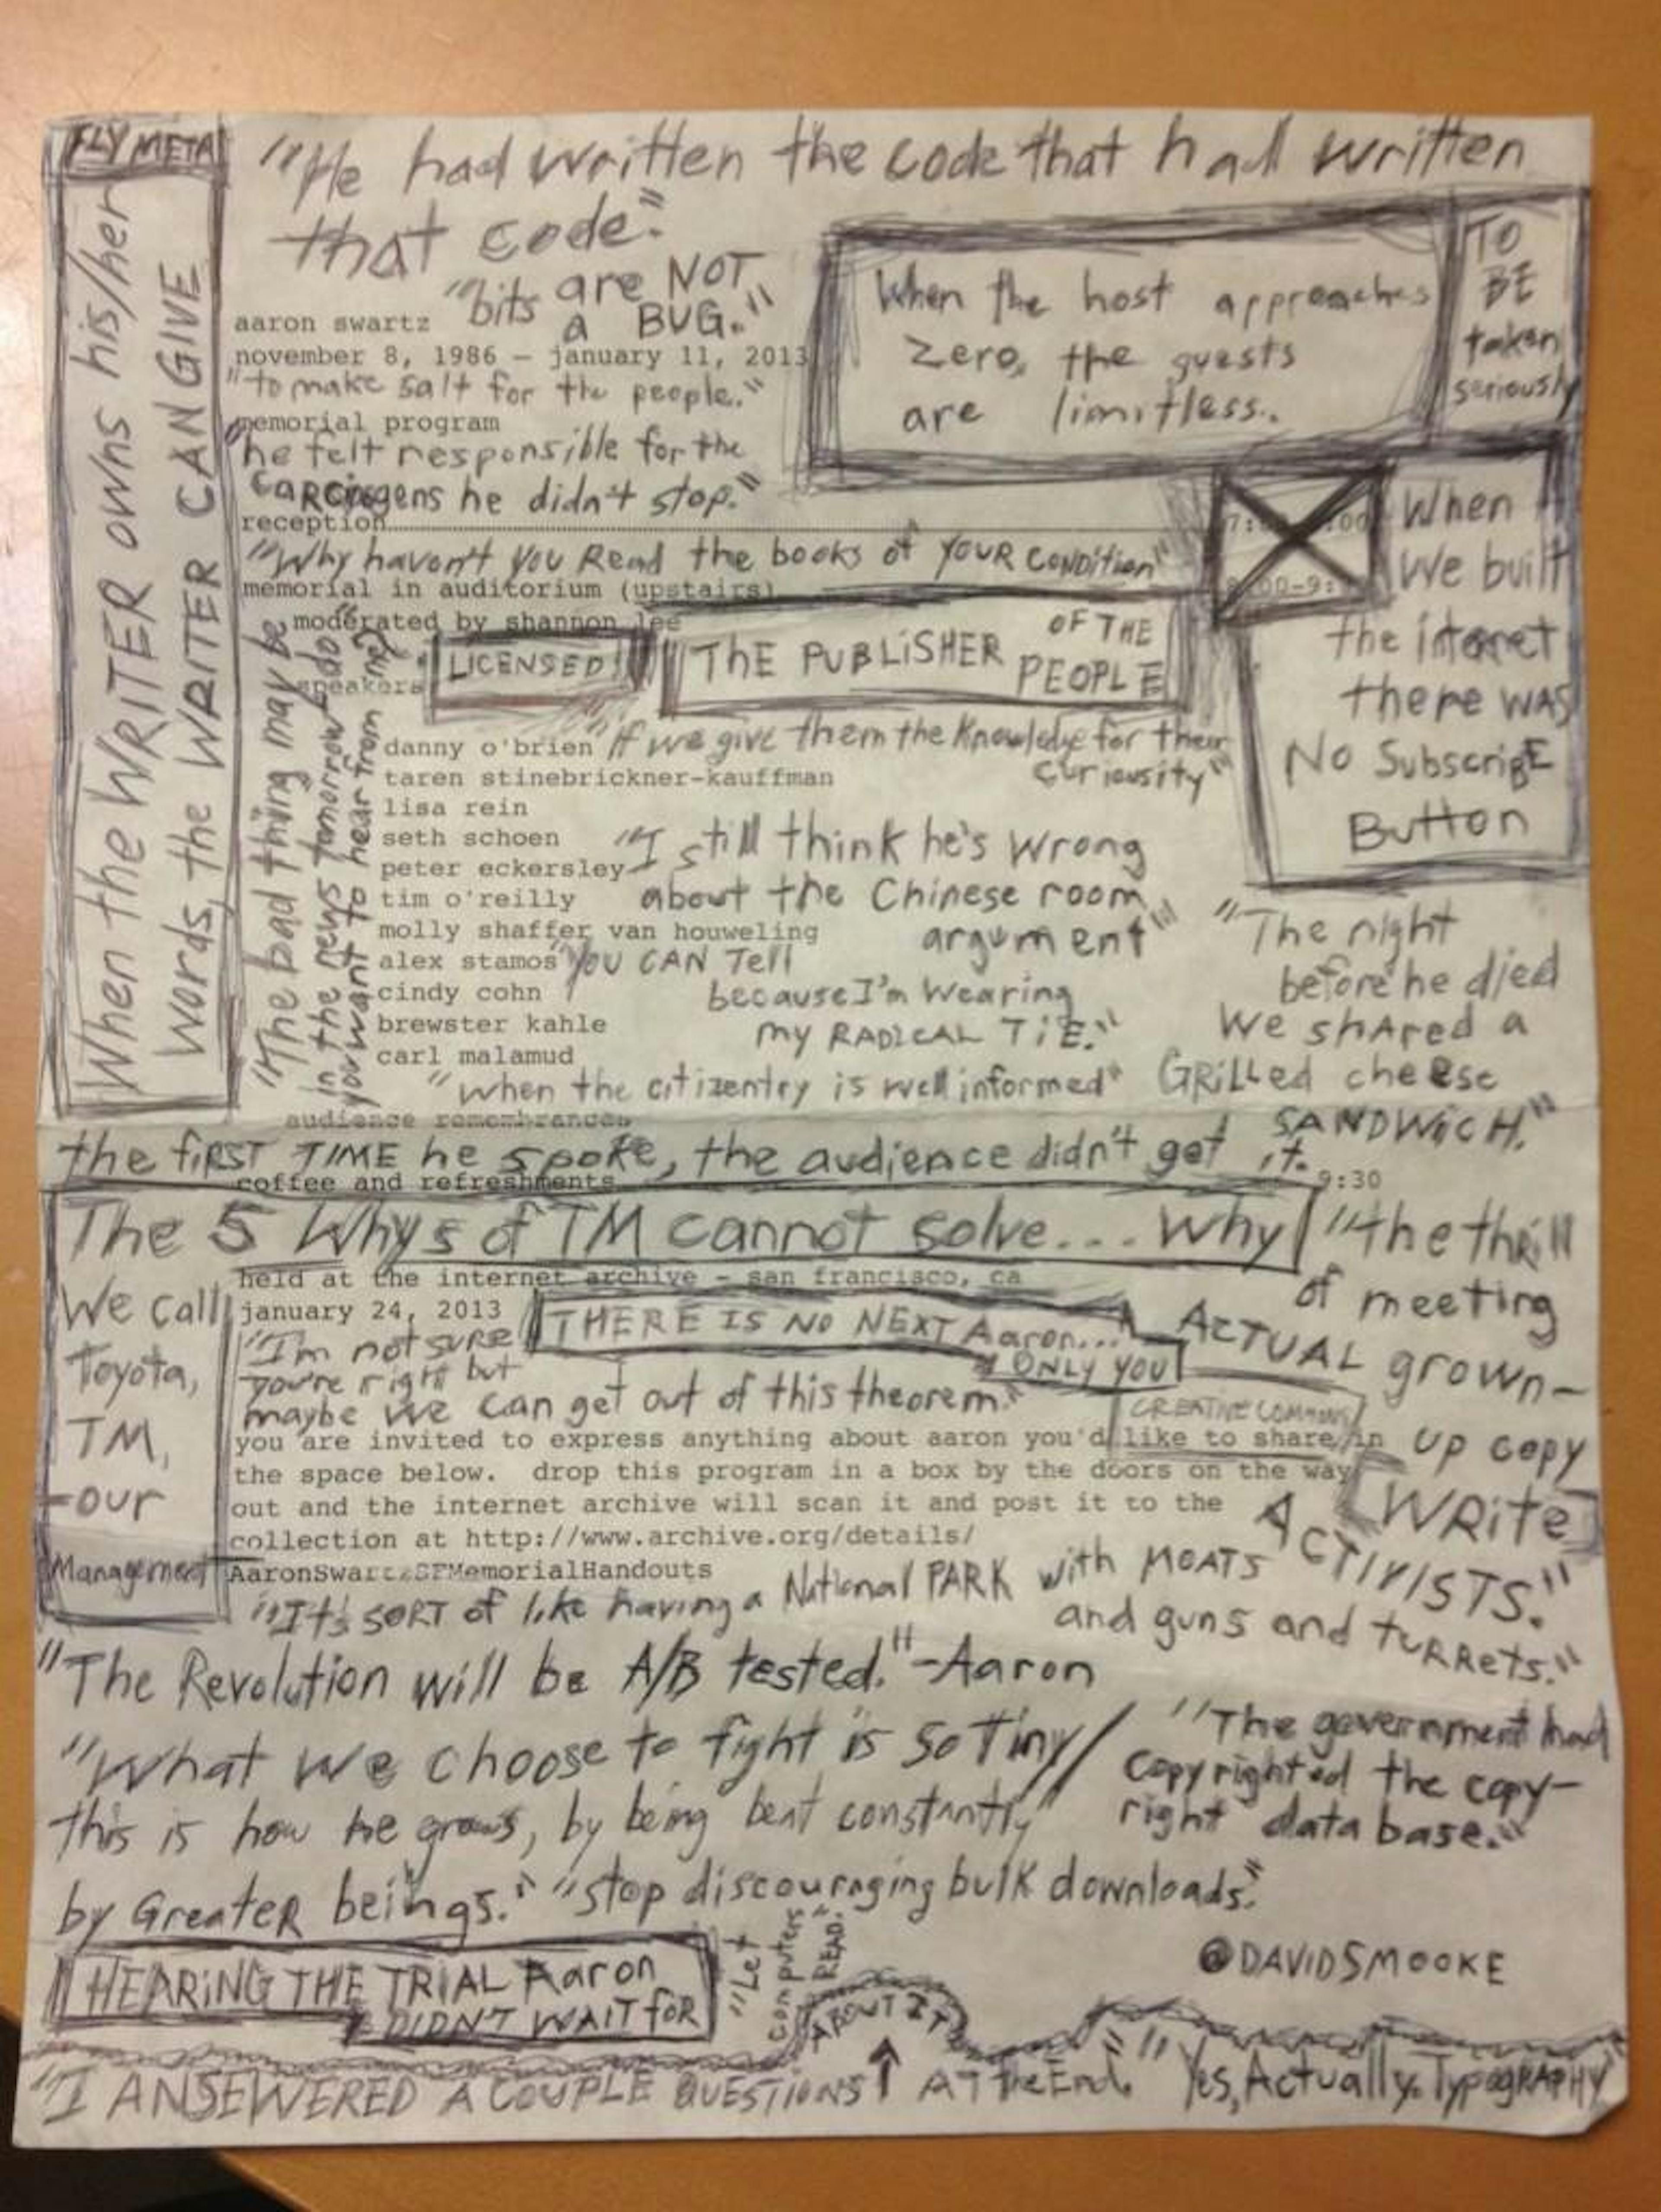 FLY META
When the WRITER owns his/her
words, the WRITER CAN GIVE
"He had written the code that had written
that code."
"bits are NOT
a BUG."
aaron swartz
november 8, 1986 – january 11, 2013
"to make salt for the people."
memorial program
"he felt responsible for the
carcinogens he didn't stop."
When the host approaches
zero, the guests
are limitless.
TO
BE
taken
seriously
reception
"Why haven't you Read the books of YOUR CONDITION"
memorial in auditorium (upstairs)
moderated by shannon lee
LICENSED
THE PUBLISHER OF THE
PEOPLE
When
We built
the internet
there was
No Subscribe
Button
speakers
"The bad thing may be
in the news tomorrow (do
you want to hear from me?)
danny o'brien
"if we give them the Knowledge for their
curiousity"
taren stinebrickner-kauffman
lisa rein
seth schoen
peter eckersley
tim o'reilly
molly shaffer van houweling
alex stamos
cindy cohn
brewster kahle
carl malamud
"I still think he's wrong
about the Chinese room
argument"
"YOU CAN Tell
because I'm Wearing
my RADICAL TiE."
"The night
before he died
We shared a
GRilled cheese
SANDWiCH."
"when the citizentry is well informed"
audience remembrances
the fiRST TIME he spoke, the audience didn't get it.
coffee and refreshments
9:30
The 5 Whys of TM cannot solve... Why
We call
Toyota,
TM,
-our
Management
held at the internet archive – san francisco, ca
january 24, 2013
THERE IS NO NEXT Aaron...
ONLY YOU
"I'm not sure
you're right but
maybe we can get out of this theorem."
"the thrill
of meeting
ACTUAL grown-
up copy
WRite
ACTIVISTS."
CREATIVE COMMONS
you are invited to express anything about aaron you'd like to share in
the space below. drop this program in a box by the doors on the way
out and the internet archive will scan it and post it to the
collection at http://www.archive.org/details/
AaronSwartzSFMemorialHandouts
"It's SORT of like having a National PARK with MOATS
and guns and tuRRets."
"The Revolution will be A/B tested." -Aaron
"What we choose to fight is so tiny/
this is how he grows, by being beat constantly
by GreateR beings."
"The government had
copyrighted the copy-
right data base."
"stop discouraging bulk downloads."
HEARING THE TRIAL Aaron
DIDN'T WAIT foR
"Let
computers
READ."
@DAVIDSMOOKE
ABOUT IT
"I ANSEWERED A COUPLE QUESTIONS AT the End."
"Yes, Actually. TypogRAPHY